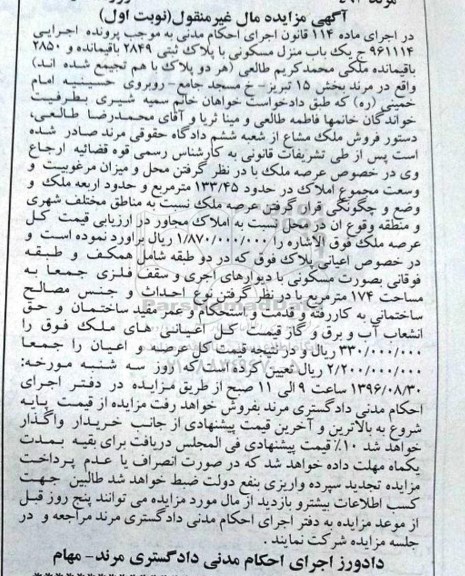 آگهی مزایده مال غیرمنقول(نوبت اول)
در اجرای ماده ۱۱۴ قانون اجرای احکام مدنی به موجب پرونده اجرایی
۹۶۱۱۱۴ ج یک باب منزل مسکونی با پلاک ثبتی ۲۸۴۹ باقیمانده و ۲۸۵۰
باقیمانده ملکی محمدکریم طالعی (هر دو پلاک با هم تجمیع شده اند)
واقع در مرند بخش ۱۵ تبریز- خ مسجد جامع- روبروی حسینیه امام
خمینی (ره) که طبق دادخواست خواهان خانم سمیه شیری بطرفیت
خواندگان خانمها فاطمه طالعی و مینا ثریا و آقای محمدرضا طالعی،
دستور فروش ملک مشاع از شعبه ششم دادگاه حقوقی مرند صادر شده
است پس از طی تشریفات قانونی به کارشناس رسمی قوه قضائیه ارجاع
وی در خصوص عرصه ملک با در نظر گرفتن محل و میزان مرغوبیت و
وسعت مجموع املاک در حدود ۱۳۳/۴۵ مترمربع و حدود اربعه ملک و
وضع و چگونگی قرار گرفتن عرصه ملک نسبت به مناطق مختلف شهری
و منطقه وقوع ان در محل نسبت به املاک مجاور در ارزیابی قیمت کل
عرصه ملک فوق الاشاره را ۱/۸۷۰/۰۰۰/۰۰۰ ریال برآورد نموده است و
در خصوص اعیانی پلاک فوق که در دو طبقه شامل همکف و طبقه
فوقانی بصورت مسکونی با دیوارهای آجری و سقف فلزی جمعا به
مساحت ۱۷۴ مترمربع با در نظر گرفتن نوع احداث و جنس مصالح
ساختمانی به کاررفته و قدمت و استحکام و عمر مفید ساختمان و حق
انشعاب آب و برق و گاز قیمت کل اعیانی های ملک فوق را
۳۳۰/۰۰۰/۰۰۰ ریال و در نتیجه قیمت کل عرصه و اعیان را جمعا
۲/۲۰۰/۰۰۰/۰۰۰ ریال تعیین کرده است که روز سه شنبه مورخه:
۱۳۹۶/۰۸/۳۰ ساعت ۹ الی ۱۱ صبح از طریق مزایده در دفتر اجرای
احکام مدنی دادگستری مرند بفروش خواهد رفت مزایده از قیمت پایه
شروع به بالاترین و آخرین قیمت پیشنهادی از جانب خریدار واگذار
خواهد شد ۱۰٪ قیمت پیشنهادی فی المجلس دریافت برای بقیه بمدت
یکماه مهلت داده خواهد شد که در صورت انصراف یا عدم پرداخت
مزایده تجدید سپرده واریزی بنفع دولت ضبط خواهد شد طالبین جهت
کسب اطلاعات بیشترو بازدید از مال مورد مزایده می توانند پنج روز قبل
از موعد مزایده به دفتر اجرای احکام مدنی دادگستری مرند مراجعه و در
جلسه مزایده شرکت نمایند .
دادورز اجرای احکام مدنی دادگستری مرند- مهام